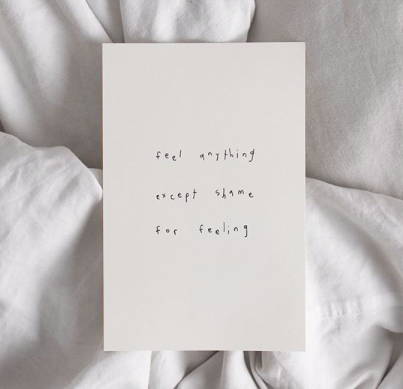 feel anything
except shame
for feeling